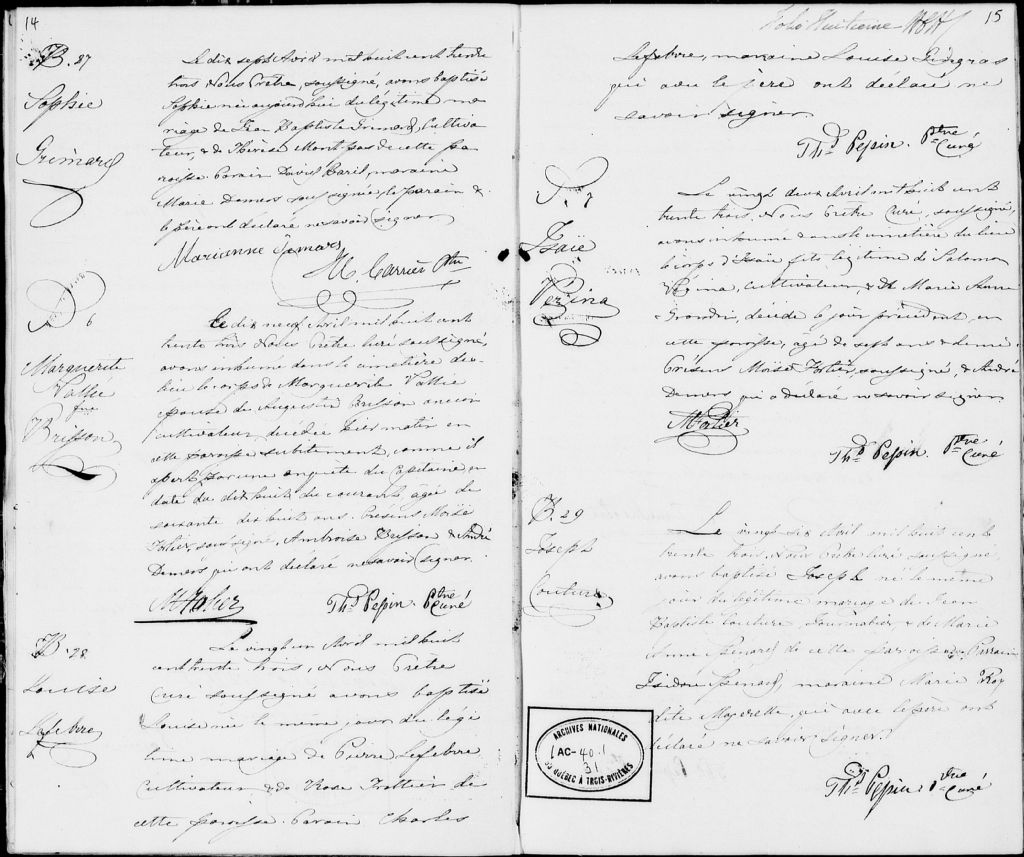 14
B. 27
Sophie
Grimard
Le dix sept Avril mil huit cent trente
trois Nous Prêtre, soussigné, avons baptisé
Sophie née aujourd'hui du légitime ma
riage de Jean Baptiste Grimard, Cultiva
teur, & de Thérèse Mont pas de cette pa
roisse. Parain David Baril, maraine
Marie Demers soussignée, le parain &
le père ont déclaré ne savoir signer
Marianne Demars
M. Carrier Ptre
6
Marguerite
Vallée
fme
Brisson
Le dix neuf Avril mil huit cent
trente trois Nous Prêtre Curé soussigné,
avons inhumé dans le cimetière du
lieu le corps de Marguerite Vallée
épouse de Augustin Brisson ancien
cultivateur décédée hier matin en
cette paroisse subitement, comme il
apert par une enquete du Capitaine en
date du dixhuit du courant, agée de
soixante dix huit ans. Présens Moïse
Fortier, soussigné, Ambroise Brisson & André
Demers qui ont déclaré ne savoir signer.
M Fortier
Thd Pepin. Ptre Curé
B. 28
Louise
Lefebvre
Le vingt un Avril mil huit
cent trente trois, Nous Prêtre
Curé soussigné avons baptisé
Louise née le meme jour du légi
time mariage de Pierre Lefebvre
Cultivateur & de Rose Trottier de
cette paroisse. Parain Charles
15
Folio Huitieme
Lefebvre, maraine Louise
qui avec le père ont déclaré ne
savoir signer
Thd Pepin. Ptre Curé
S. 7
Isaïe
Vezina
Le vingt deux Avril mil huit cent
trente trois, Nous Prêtre Curé, soussigné,
avons inhumé dans le cimetière du lieu
le corps d'Isaïe fils légitime de Salomon
Vézina, Cultivateur & de Marie Anne
Grondin, décédé le jour précédent, en
cette paroisse, agé de sept ans & demi
Présens Moïse Fortier, soussigné, & André
Demers qui a déclaré ne savoir signer
M Fortier
Thd Pepin. Ptre Curé
B. 29
Joseph
Couture
Le vingt six Avril mil huit cent
trente trois, Nous Prêtre Curé soussigné
avons baptisé Joseph né le même
jour du légitime mariage de Jean
Baptiste Couture, Journalier & de Marie
Anne de cette paroisse. Parrain
Isidore maraine Marie Roy
dite qui avec le père ont
déclaré ne savoir signer.
Thd Pepin. Ptre Curé
ARCHIVES NATIONALES
AC-40-1
31
DU QUÉBEC À TROIS-RIVIÈRES